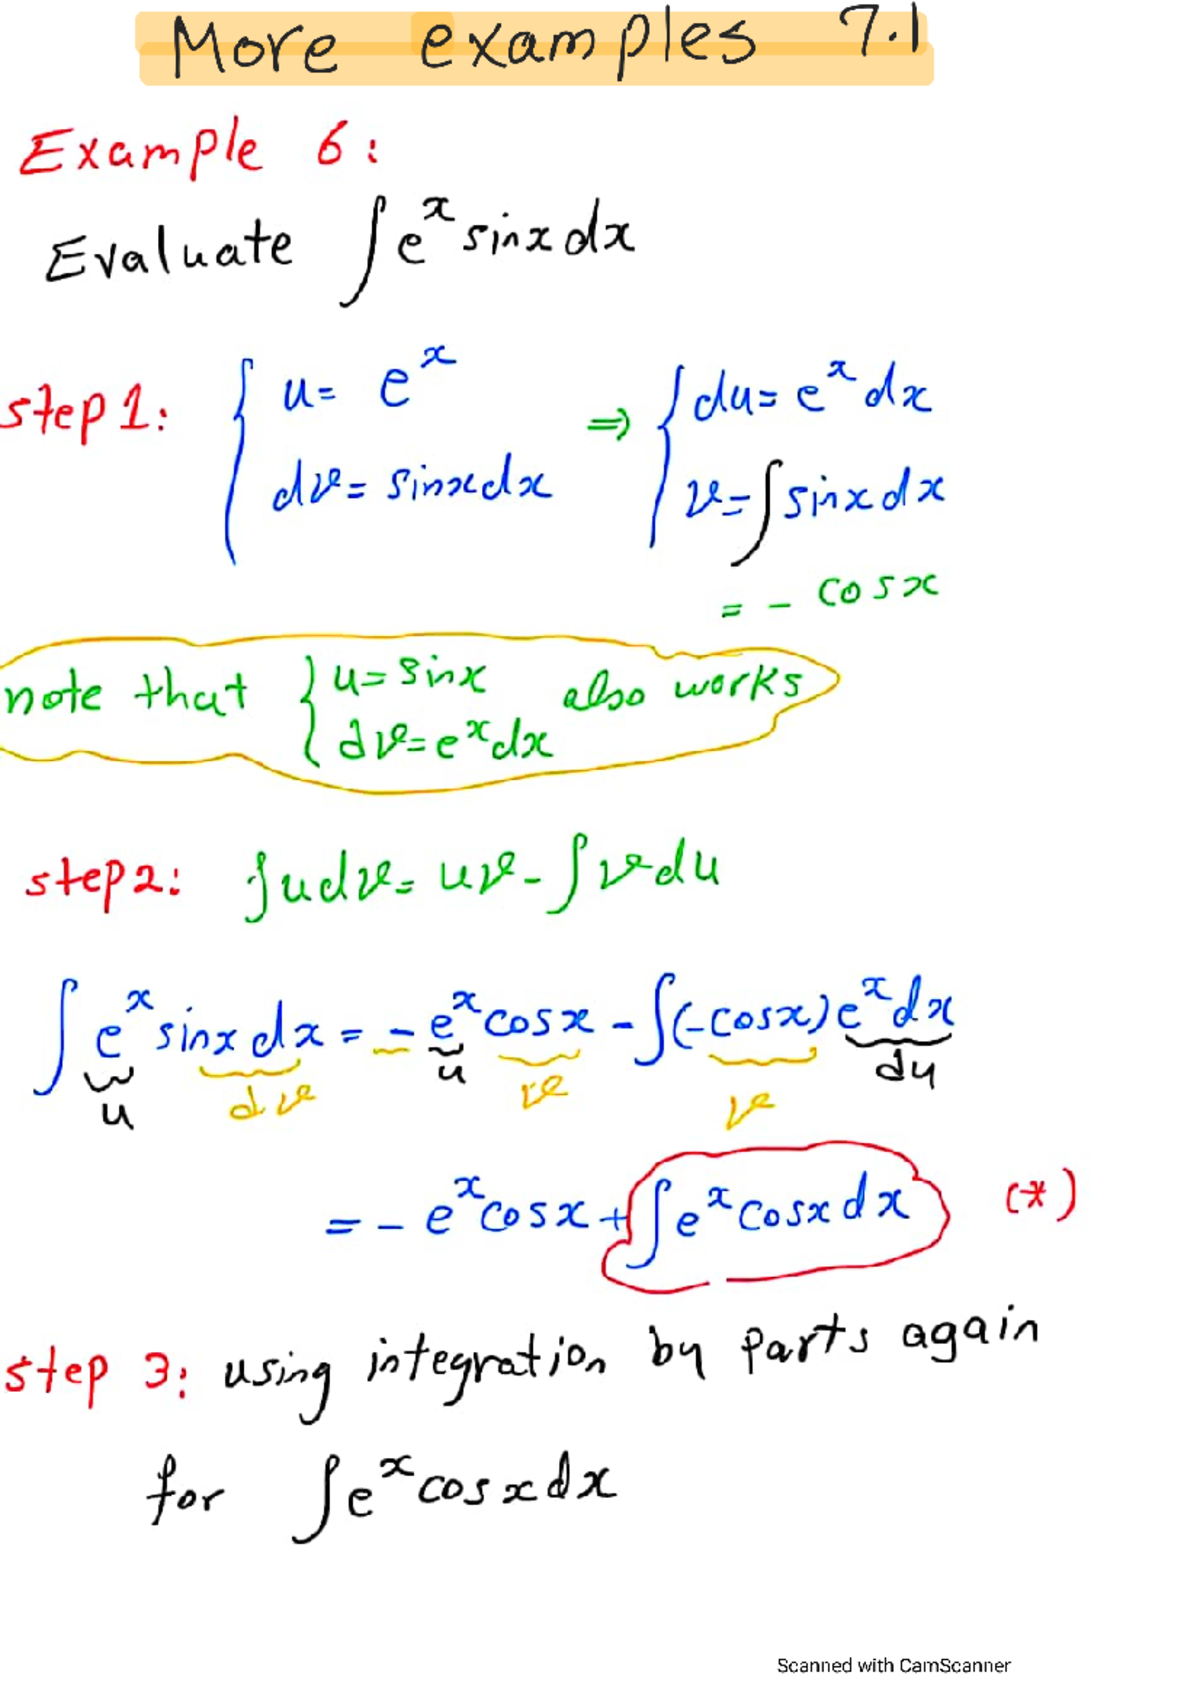 More examples 7.1
Example 6:
Evaluate ∫eˣ sinx dx
step 1: { u = eˣ ⇒ { du = eˣ dx
dv = sinx dx v = ∫sinx dx
= - cosx
note that { u = sinx also works
dv = eˣ dx
step 2: ∫udv = uv - ∫vdu
∫ eˣ sinx dx = - eˣ cosx - ∫(-cosx) eˣ dx
u dv u v v du
= - eˣ cosx + ∫eˣ cosx dx (*)
step 3: using integration by parts again
for ∫eˣ cosx dx
Scanned with CamScanner